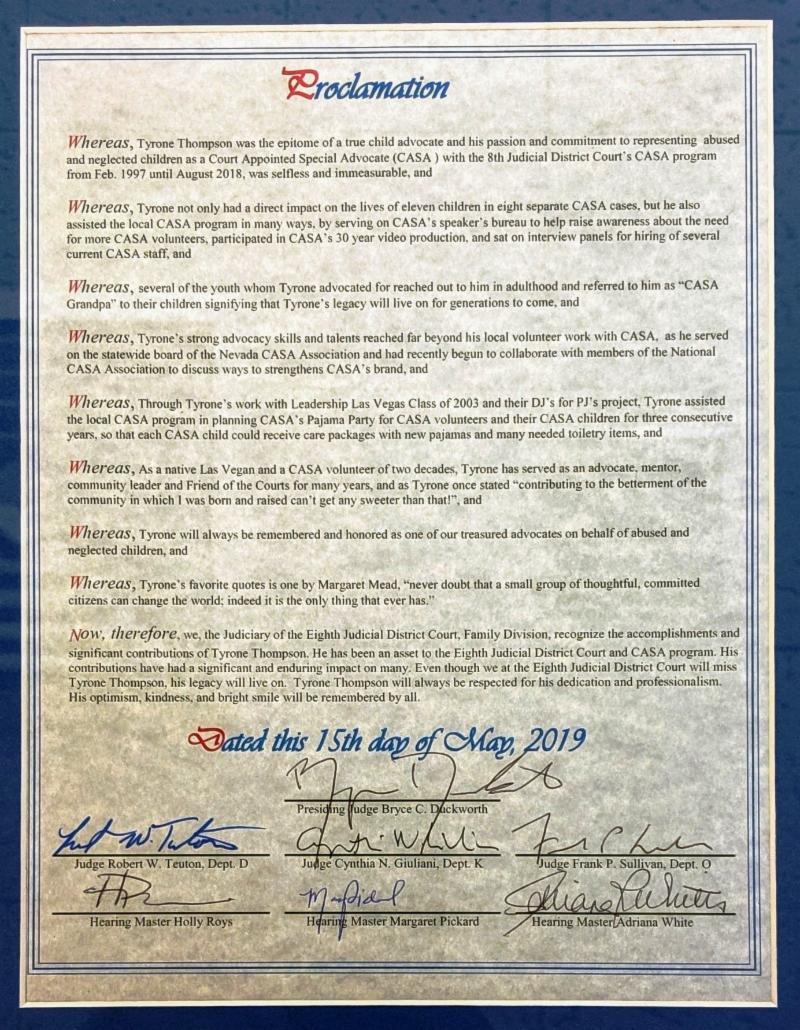 Proclamation
Whereas, Tyrone Thompson was the epitome of a true child advocate and his passion and commitment to representing abused
and neglected children as a Court Appointed Special Advocate (CASA ) with the 8th Judicial District Court's CASA program
from Feb. 1997 until August 2018, was selfless and immeasurable, and
Whereas, Tyrone not only had a direct impact on the lives of eleven children in eight separate CASA cases, but he also
assisted the local CASA program in many ways, by serving on CASA's speaker's bureau to help raise awareness about the need
for more CASA volunteers, participated in CASA's 30 year video production, and sat on interview panels for hiring of several
current CASA staff, and
Whereas, several of the youth whom Tyrone advocated for reached out to him in adulthood and referred to him as "CASA
Grandpa" to their children signifying that Tyrone's legacy will live on for generations to come, and
Whereas, Tyrone's strong advocacy skills and talents reached far beyond his local volunteer work with CASA, as he served
on the statewide board of the Nevada CASA Association and had recently begun to collaborate with members of the National
CASA Association to discuss ways to strengthens CASA's brand, and
Whereas, Through Tyrone's work with Leadership Las Vegas Class of 2003 and their DJ's for PJ's project, Tyrone assisted
the local CASA program in planning CASA's Pajama Party for CASA volunteers and their CASA children for three consecutive
years, so that each CASA child could receive care packages with new pajamas and many needed toiletry items, and
Whereas, As a native Las Vegan and a CASA volunteer of two decades, Tyrone has served as an advocate, mentor,
community leader and Friend of the Courts for many years, and as Tyrone once stated "contributing to the betterment of the
community in which I was born and raised can't get any sweeter than that!", and
Whereas, Tyrone will always be remembered and honored as one of our treasured advocates on behalf of abused and
neglected children, and
Whereas, Tyrone's favorite quotes is one by Margaret Mead, "never doubt that a small group of thoughtful, committed
citizens can change the world; indeed it is the only thing that ever has."
Now, therefore, we, the Judiciary of the Eighth Judicial District Court, Family Division, recognize the accomplishments and
significant contributions of Tyrone Thompson. He has been an asset to the Eighth Judicial District Court and CASA program. His
contributions have had a significant and enduring impact on many. Even though we at the Eighth Judicial District Court will miss
Tyrone Thompson, his legacy will live on. Tyrone Thompson will always be respected for his dedication and professionalism.
His optimism, kindness, and bright smile will be remembered by all.
Dated this 15th day of May, 2019
Presiding Judge Bryce C. Duckworth
Judge Robert W. Teuton, Dept. D
Judge Cynthia N. Giuliani, Dept. K
Judge Frank P. Sullivan, Dept. O
Hearing Master Holly Roys
Hearing Master Margaret Pickard
Hearing Master Adriana White